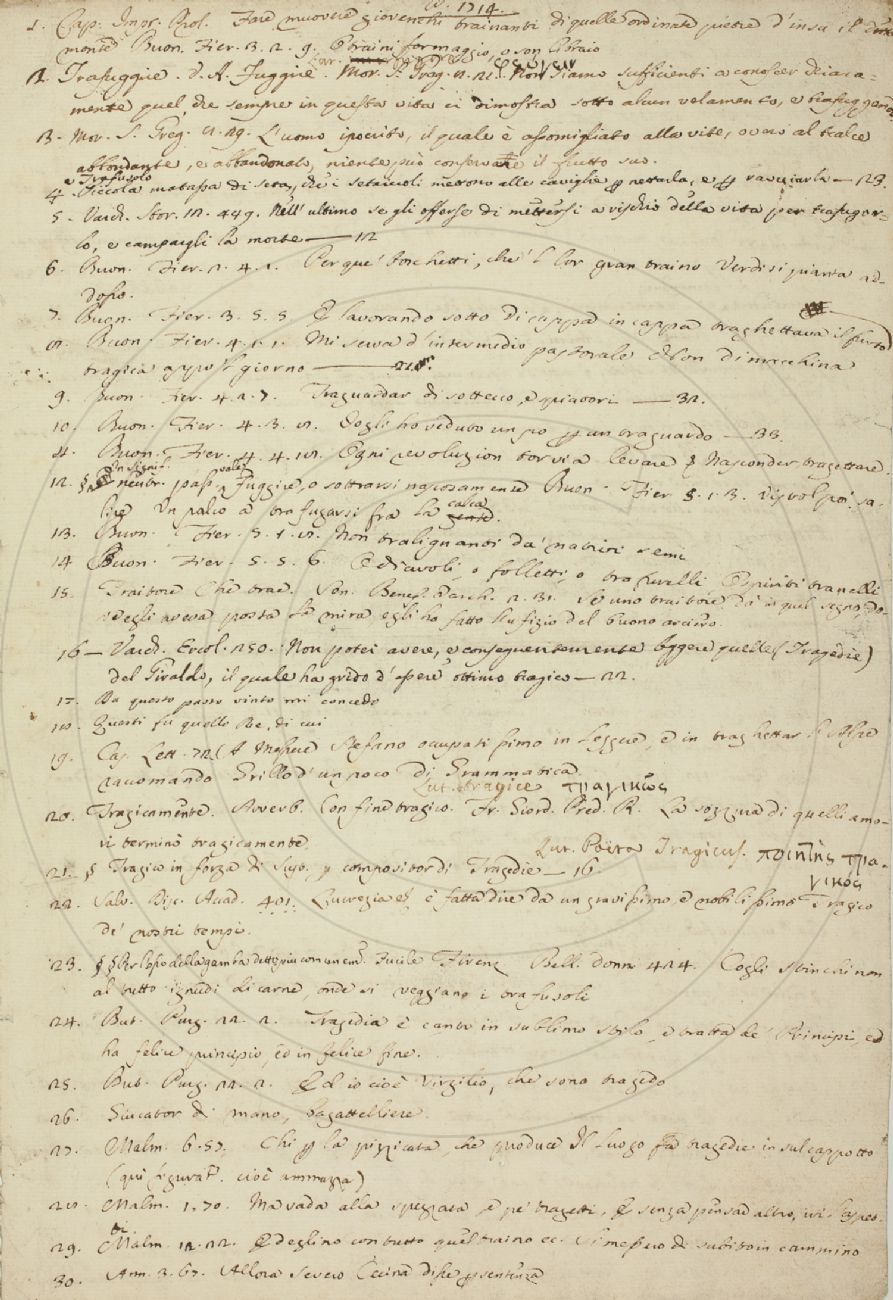 1714.
1. Cap. Impr. Prol. Fare muovere giovenchi trainanti di quelle ordinate pietre d'in su il detto
monte Buon. Fier. 3. 2. 9. E traini formaggio, o son libraio
2. Trafuggire. V. A. Fuggire. Mor. S. Greg. Non siamo sufficienti a conoscer chiara-
mente quel, che sempre in questa vita ci dimostra sotto alcun velamento, e trafuggendo
3. Mor. S. Greg. L'uomo ipocrito, il quale è assomigliato alla vite, ovvero al tralce
abbondante, e abbandonato, niente può conservare il frutto suo.
e Trafusolo
4. Piccola matassa di seta, che i setaiuoli mettono alle caviglie p nettarla, e p ravviarla — 23.
5. Varch. Stor. 12. 449. Nell'ultimo se gli offerse di mettersi a rischio della vita per trafugar-
lo, e campargli la morte — 12
6. Buon. Fier. 2. 4. 1. Perque' boschetti, che 'l lor gran traino Verdi si pianta ad-
dosso.
7. Buon. Fier. 3. 5. 5 E lavorando sotto Di cappa in cappa traghettava il furto
8. Buon. Fier. 4. 1. 1. Mi serva d'intermedio pastorale Con Di macchina
tragica appo 'l giorno — 21.
9. Buon. Fier. 4. 2. 7. Traguardar di sottecco, e piacori — 32.
10. Buon. Fier. 4. 3. Dogli ho veduto un po p un traguardo — 33.
11. Buon. Fier. 4. 4. 12. Ogni revoluzion torvia Levare & Nasconder, tragettare.
12. § In signif. neutr. pass. vale Fuggire, o sottrarsi nascosamente Buon. Fier 5. 1. 3. Vispol poi sa-
lire In palco a trafugarsi fra la calca
13. Buon. Fier. 5. 1. Non tralignanti da' nativi semi
14 Buon. Fier. 5. 5. 6. E diavoli, o folletti, o tranelli E spiriti tranelli
15. Traitore Che trae. Sen. Benef. Varch. 2. 31. Se uno traitore dà in quel segno, do-
v'egli aveva posta la mira egli ha fatto l'ufizio del buono arciero.
16 — Varch. Ercol. 250. Non potei avere, e conseguentemente leggere quelle (Tragedie)
del Giraldo, il quale ha grido d'essere ottimo tragico — 22.
17. Da questo passo vinto mi concedo
18. Questi fu quello Re, di cui
19. Car. Lett. 72 (A Messere Stefano occupatissimo in Leggere, e in traghettar l'Alpe
racomando Grillo d'un poco di Grammatica.
Lat. tragice τραγικῶς
20. Tragicamente. Avverb. Con fine tragico. Fr. Giord. Pred. R. La sozzura di quelli amo-
ri terminò tragicamente
Lat. Poeta Tragicus. ποιητὴς τρα-
γικός
21. § Tragico in forza di Sust. p compositor di Tragedie — 16.
22. Salv. Disc. Acad. 401. Lucrezia & è fatta dire da un gravissimo, e nobilissimo Tragico
de' nostri tempi.
23. § § Per l'osso della gamba detto più comunem. Fucile Firenz Bell. donn 424. Cogli stinchi non
al tutto ignudi di carne, onde si veggiano i trafusoli
24. But. Purg. 22. 2. Tragedia è canto in sublimo stilo, e tratta de' Principi, ed
ha felice principio, ed in felice fine.
25. But. Purg. 22. 2. Ed io cioè Virgilio, che sono tragedo
26. Giucator di mano, bagattelliere.
27. Malm. 6. 57. Chi p la pizzicata, che produce Il luogo fa tragedie in sul cappotto
(qui figurat. cioè ammazza)
28. Malm. 1. 70. Ma vada alla spezzata, e pe' tragetti, E senza pensar altro, ivi l'aspet-
ti.
29. Malm. 12. 22. E deglino con tutto quel traino ec. Si messero di subito in cammino
30. Ann. 3. 67. Allora Severo Cecina disse p sentenza